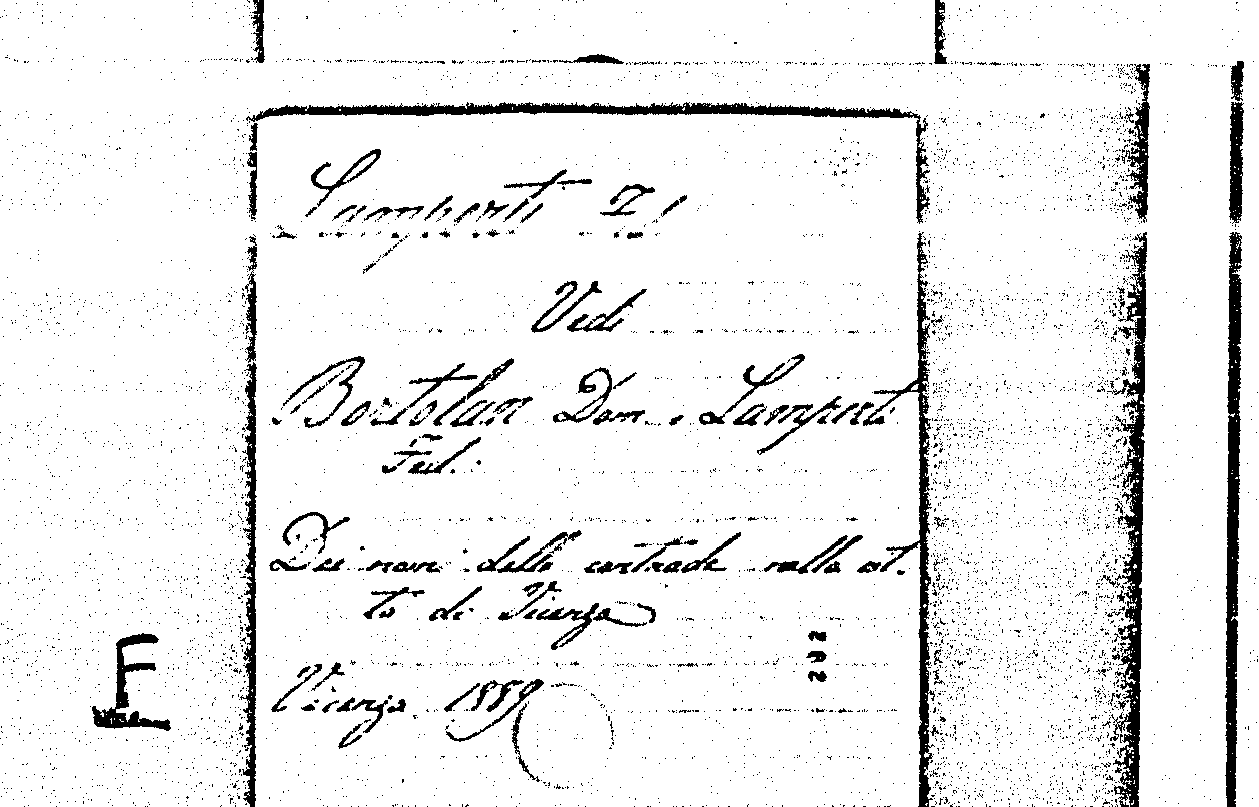 Lamperti Fed
Vedi
Bortolan Dom. e Lamperti
Fed.
Dei nomi delle contrade nella cit-
tà di Vicenza
Vicenza 1889
202
F